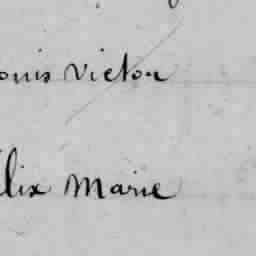 ouis Victor
élix Marie